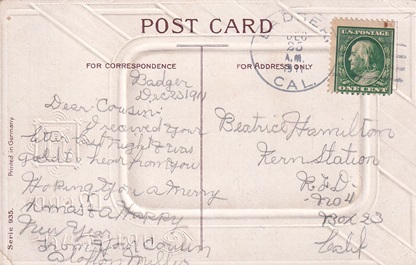 POST CARD
FOR CORRESPONDENCE
FOR ADDRESS ONLY
Badger
Dec 25 1911
Dear Cousin:
I received your
letter last night & was
glad to hear from you
Hoping you a merry
Xmas & a Happy
New Year
From your cousin
Miller
DEC
25
A.M.
1911
CAL.
U.S. POSTAGE
ONE CENT
Beatrice Hamilton
Fern Station
R.F.D.
No 4
Box 23
Calif
Printed in Germany
Serie 935.